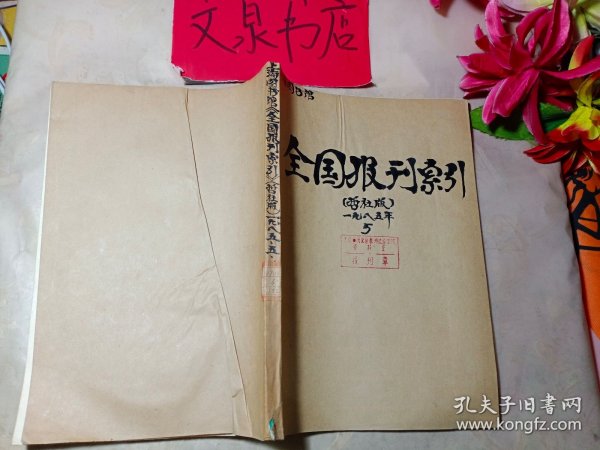 文泉书店
上海图书馆《全国报刊索引》(哲社版)一九八五·五·
全国报刊索引
(哲社版)
一九八五年
5
资料室
报刊章
孔夫子旧书网
www.kongfz.com